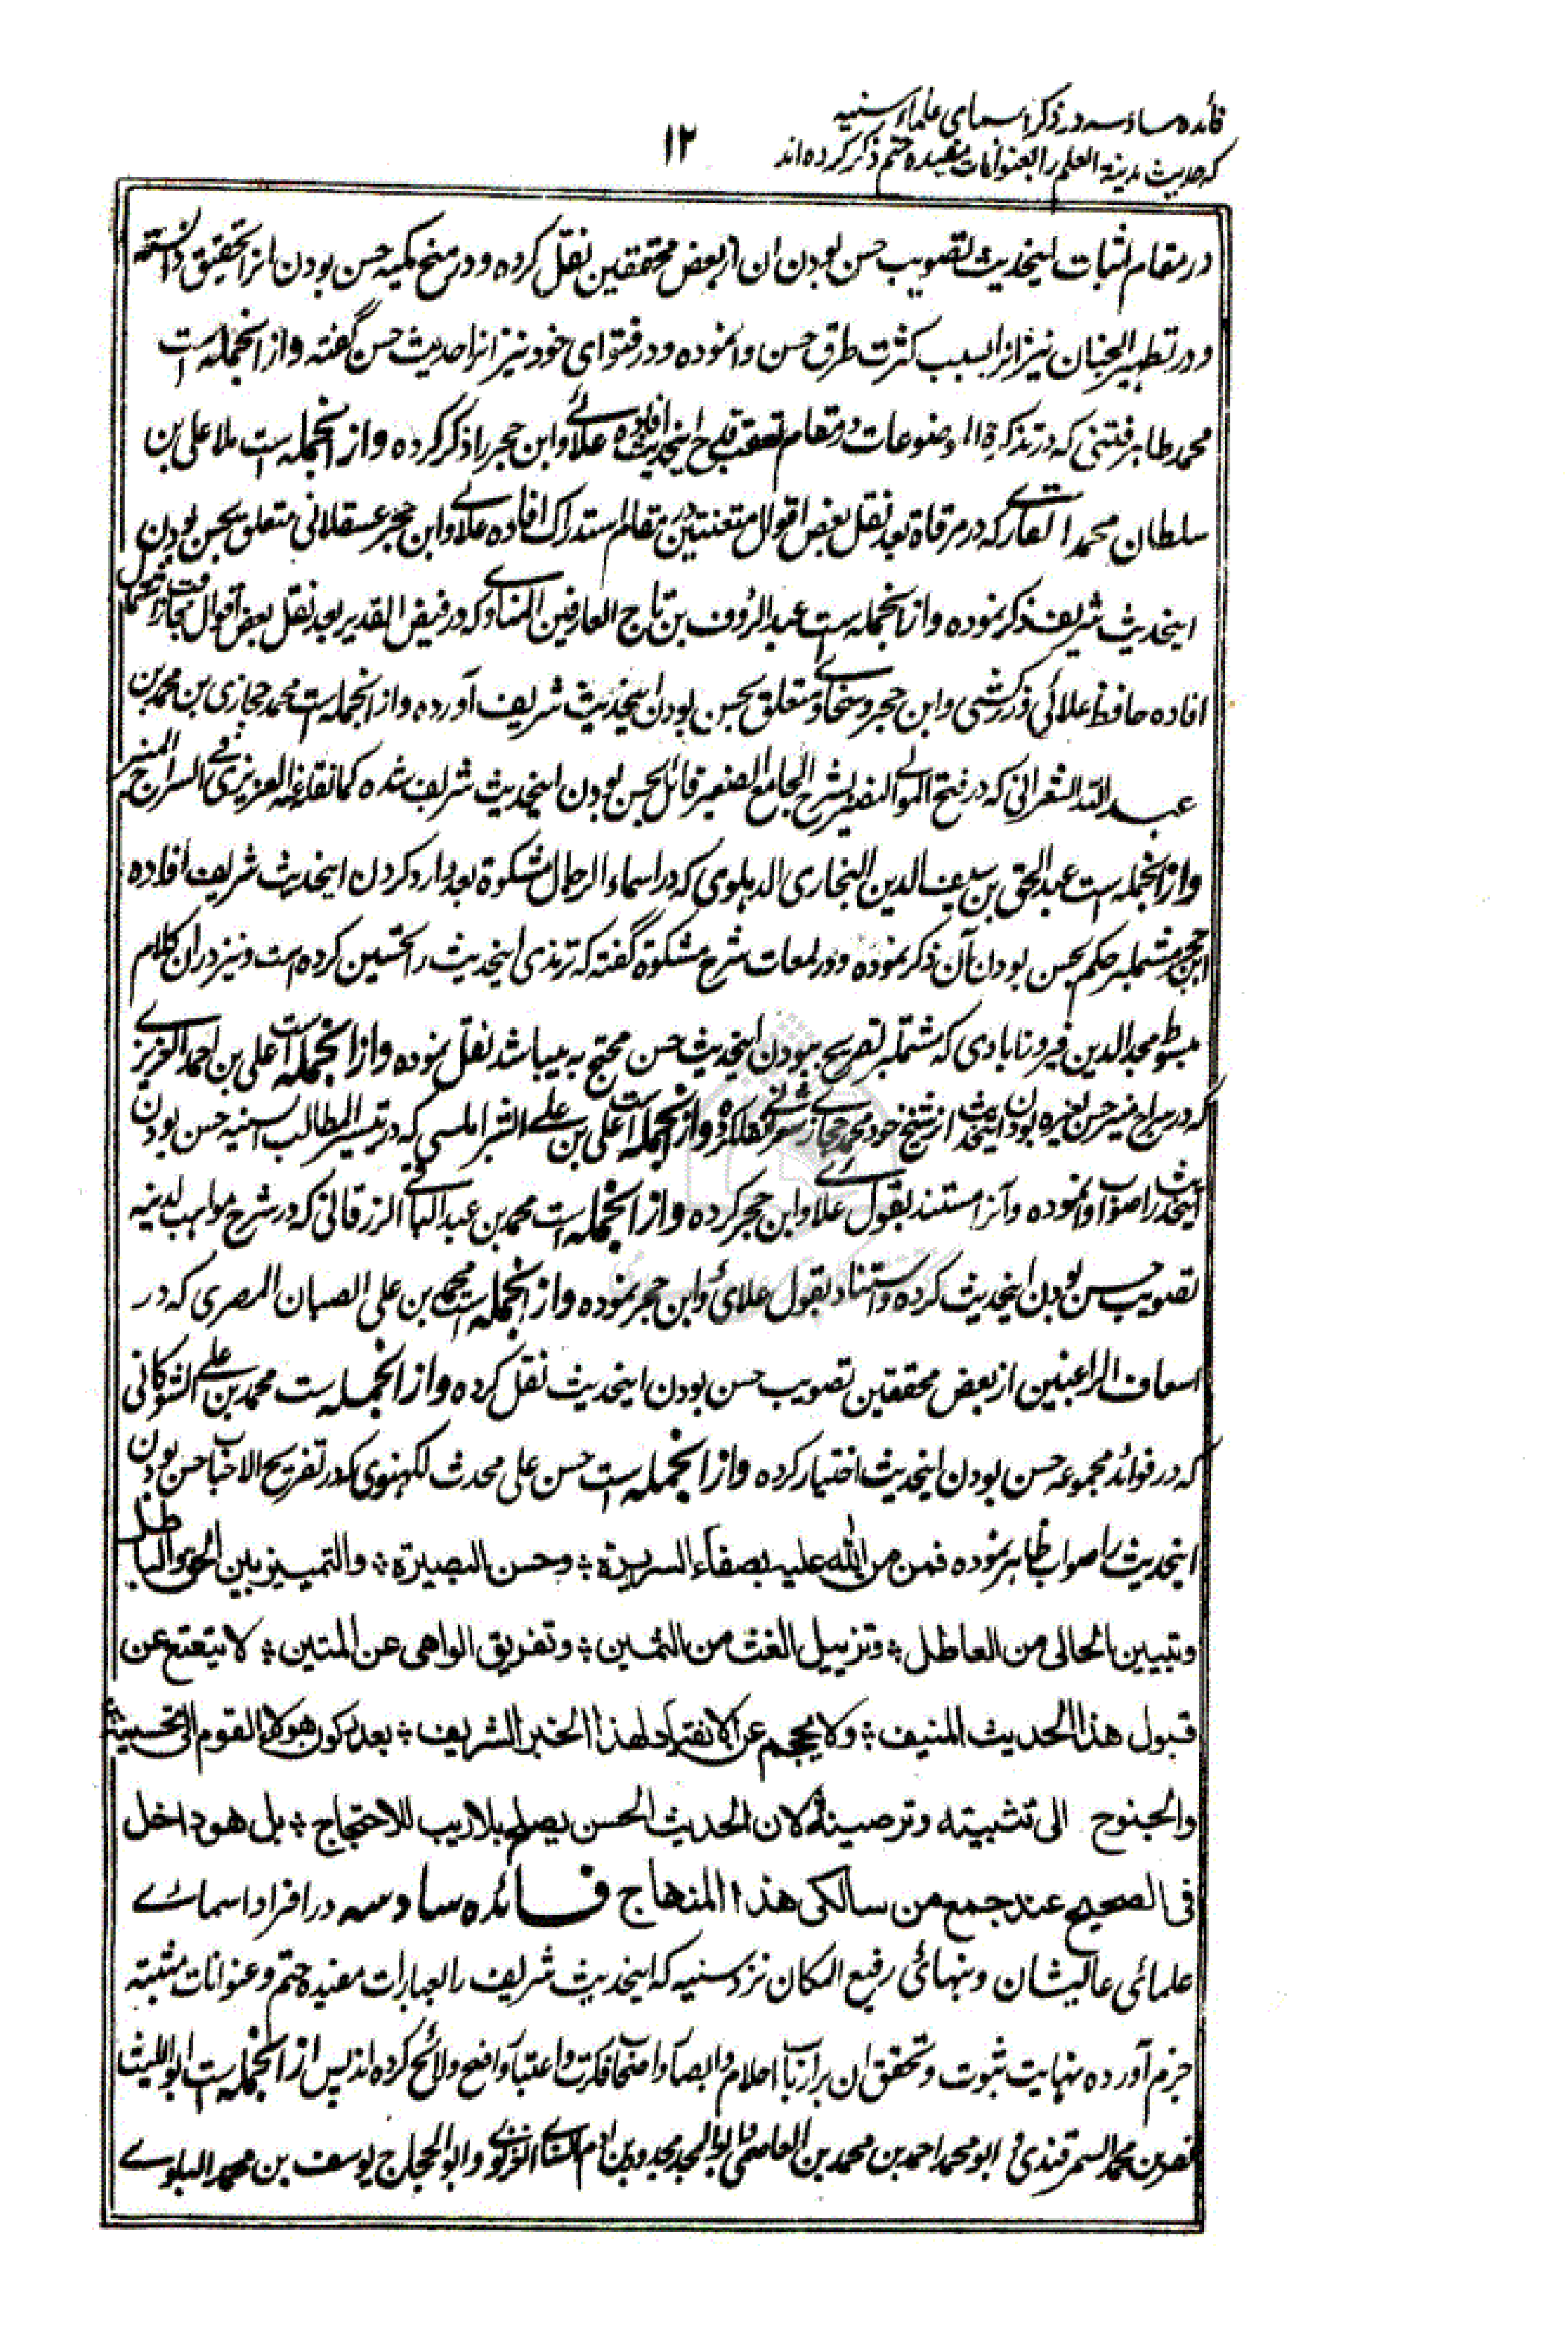 فائده سادسه در ذکر اسمای علماء سنیه
۱۲
که حدیث مدینة العلم را بعنوانات مفیده حتم ذکر کرده اند
در مقام اثبات اینحدیث تصویب حسن بودن ان از بعض محققین نقل کرده و در منح مکیه حسن بودن انرا تحقیق دانسته
و در تطهیر الجنان نیز انرا بسبب کثرت طرق حسن وانموده و در فتوای خود نیز انرا حدیث حسن گفته و از انجمله است
محمد طاهر فتنی که در تذکرة الموضوعات در مقام تعقب قدح اینحدیث افاده علائے و ابن حجر را ذکر کرده و از انجمله است ملا علی بن
سلطان محمد القاری که در مرقاة بعد نقل بعض اقوال متعنتین در مقام استدراک افاده علائے و ابن حجر عسقلانی متعلق بحسن بودن
اینحدیث شریف ذکر نموده و از انجمله است عبد الرؤف بن تاج العارفین المناوے که در فیض القدیر بعد نقل بعض اقوال
افاده حافظ علائی و زرکشی و ابن حجر و سخاوے متعلق بحسن بودن اینحدیث شریف آورده و از انجمله است محمد حجازی بن محمد بن
عبد الله الشعرانی که در فتح المولے النصیر بشرح الجامع الصغیر قائل بحسن بودن اینحدیث شریف شده کما نقله عنه العزیزی فے السراج المنیر
و از انجمله است عبد الحق بن سیف الدین البخاری الدهلوی که در اسماء الرجال مشکوة بعد وارد کردن اینحدیث شریف افاده
ابن حجر مشتمله بر حکم بحسن بودن آن ذکر نموده و در لمعات شرح مشکوة گفته که ترمذی اینحدیث را تحسین کرده است و نیز دران کلام
مبسوط مجد الدین فیروزابادی که مشتمله بر تصریح ببودن اینحدیث حسن محتج به میباشد نقل نموده و از انجمله است علی بن احمد العزیزے
که در سراج منیر حسن لغیره بودن اینحدیث از شیخ خود محمد حجازے شعرانے نقل کرده و از انجمله است علی بن علے الشبراملسی که در تیسیر المطالب السنیه حسن بودن
اینحدیث را صواب وانموده و آنرا مستند بقول علائے و ابن حجر کرده و از انجمله است محمد بن عبد الباقے الزرقانی که در شرح مواهب لدنیه
تصویب حسن بودن اینحدیث کرده و استناد بقول علائی و ابن حجر نموده و از انجمله است محمد بن علی الصبان المصری که در
اسعاف الراغبین از بعض محققین تصویب حسن بودن اینحدیث نقل کرده و از انجمله است محمد بن علے الشوکانی
که در فوائد مجموعه حسن بودن اینحدیث اختیار کرده و از انجمله است حسن علی محدث لکهنوی که در تفریح الاحباب حسن بودن
اینحدیث را صواب ظاهر نموده فمن من الله علیه بصفاء السریرة ؛ وحسن البصیرة ؛ والتمییز بین الحق والباطل
وتبیین الحالی من العاطل ؛ وتزییل الغث من الثمین ؛ وتفریق الواهی عن المتین ؛ لا یتعتع عن
قبول هذا الحدیث المنیف ؛ ولا یحجم عن الانقیاد لهذا الخبر الشریف ؛ بعد رکون هولاء القوم الی تحسینه
والجنوح الی تثبیته وترصینه لان الحدیث الحسن یصلح بلا ریب للاحتجاج ؛ بل هو داخل
فی الصحیح عند جمع من سالکی هذا المنهاج فائده سادسه در افراد اسمائے
علمائی عالیشان و نبهائی رفیع المکان نزد سنیه که اینحدیث شریف را بعبارات مفیده حتم و عنوانات مثبته
جزم آورده نهایت ثبوت و تحقق ان بر ارباب احلام و ابصار و اصحاب فکرت و اعتبار واضح و لائح کرده اند پس از انجمله است ابو اللیث
نصر بن محمد السمرقندی و ابو محمد احمد بن محمد بن العاصمی و ابو المجد مجدود بن ادم السنائی الغزنوی و ابو الحجاج یوسف بن محمد البلوے